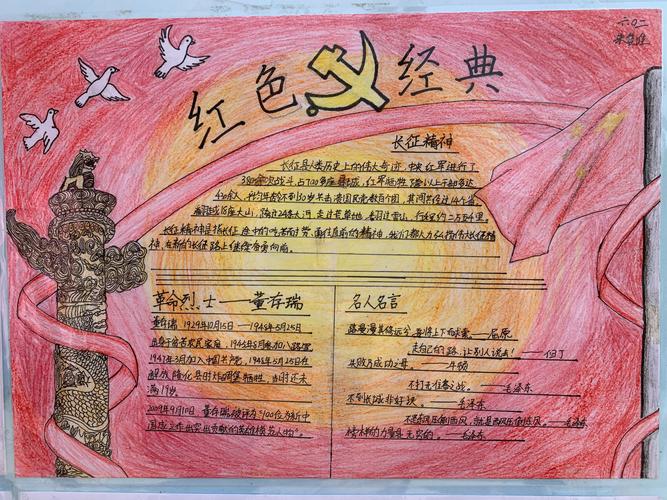 六〇二
红色经典
长征精神
长征是人类历史上的伟大奇迹,中央红军进行了
380余次战斗,占700多座县城,红军牺牲了营以上干部多达
430余人,
共经过14个省,
大山,跨过24条大河,走过荒草地,翻过雪山,行程约二万五千里。
长征精神是指长征途中的
神,在新的长征路上继续奋勇向前。
革命烈士——董存瑞
董存瑞,1929年10月15日——1948年5月25日
出身于贫苦农民家庭,1945年8月参加八路军
1947年3月加入中国共产党,1948年5月25日在
解放隆化县时炸碉堡牺牲,当时还未
满19岁。
2009年9月10日,董存瑞被评为“100位为新中
国成立作出突出贡献的英雄模范人物”。
名人名言
路漫漫其修远兮,吾将上下而求索。——屈原
走自己的路,让别人说去!——但丁
失败乃成功之母。——牛顿
不打无准备之战。——毛泽东
不到长城非好汉。——毛泽东
不是东风压倒西风,就是西风压倒东风。——毛泽东
榜样的力量是无穷的。——毛泽东